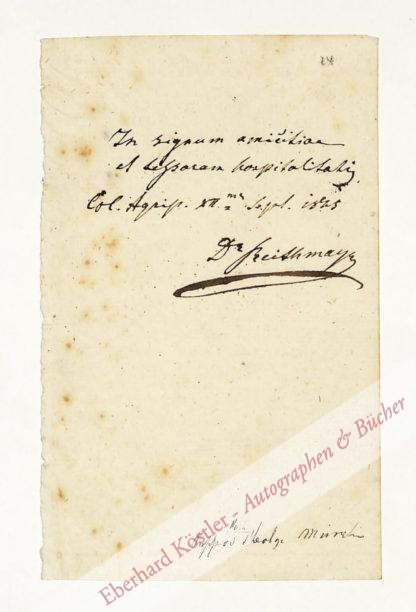 24
In signum amicitiae
et tesseram hospitalitatis
Col. Agrip. XII.
mā
Sept. 1845
Dr Reithmayr
Prof. Theolog.
Eberhard Köstler - Autographen & Bücher